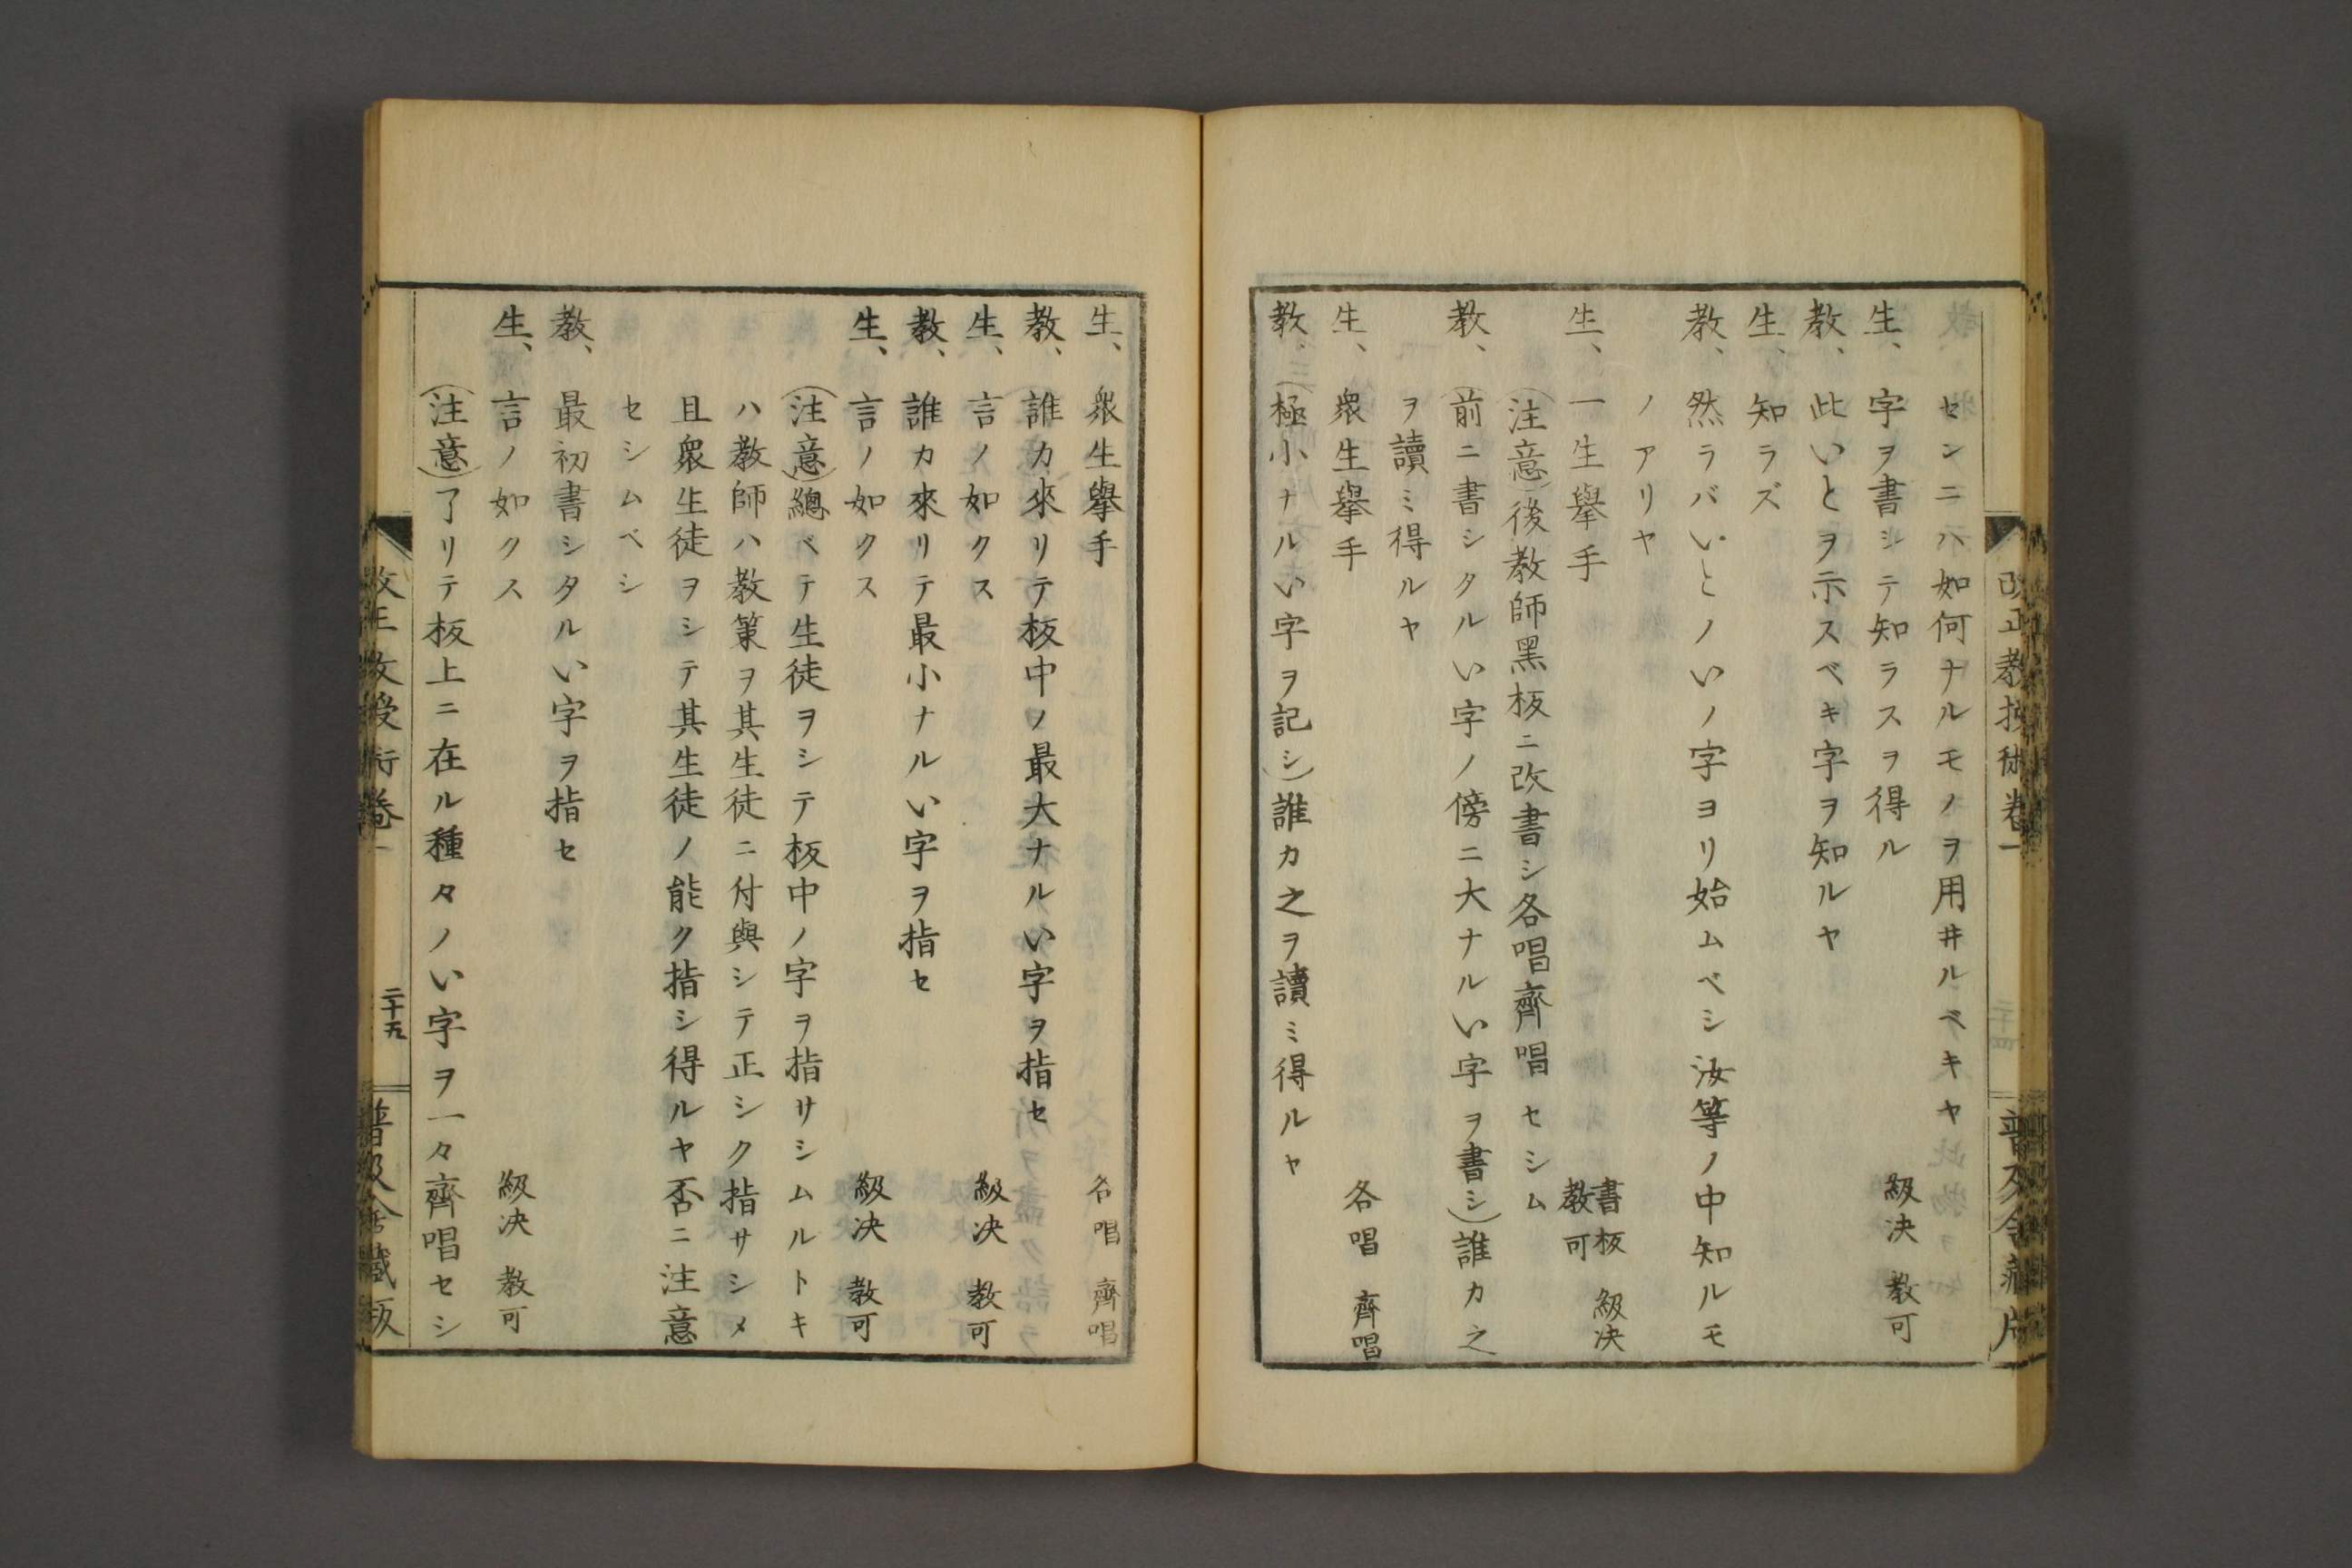 改正教授術卷一
普及舍藏版
センニハ如何ナルモノヲ用井ルベキヤ
生、字ヲ書シテ知ラスヲ得ル 級決 教可
教、此いとヲ示スベキ字ヲ知ルヤ
生、知ラズ
教、然ラバいとノいノ字ヨリ始ムベシ汝等ノ中知ルモ
ノアリヤ
生、一生擧手 書板 級決 教可
(注意)後教師黑板ニ改書シ各唱齊唱セシム
教、(前ニ書シタルい字ノ傍ニ大ナルい字ヲ書シ)誰カ之
ヲ讀ミ得ルヤ
生、衆生擧手 各唱 齊唱
教、(極小ナルい字ヲ記シ)誰カ之ヲ讀ミ得ルヤ
生、衆生擧手 各唱 齊唱
教、誰カ來リテ板中ノ最大ナルい字ヲ指セ
生、言ノ如クス 級決 教可
教、誰カ來リテ最小ナルい字ヲ指セ
生、言ノ如クス 級決 教可
(注意)總ベテ生徒ヲシテ板中ノ字ヲ指サシムルトキ
ハ教師ハ教策ヲ其生徒ニ付與シテ正シク指サシメ
且衆生徒ヲシテ其生徒ノ能ク指シ得ルヤ否ニ注意
セシムベシ
教、最初書シタルい字ヲ指セ
生、言ノ如クス 級決 教可
(注意)了リテ板上ニ在ル種々ノい字ヲ一々齊唱セシ
改正教授術卷一
二十五
普及舍藏版